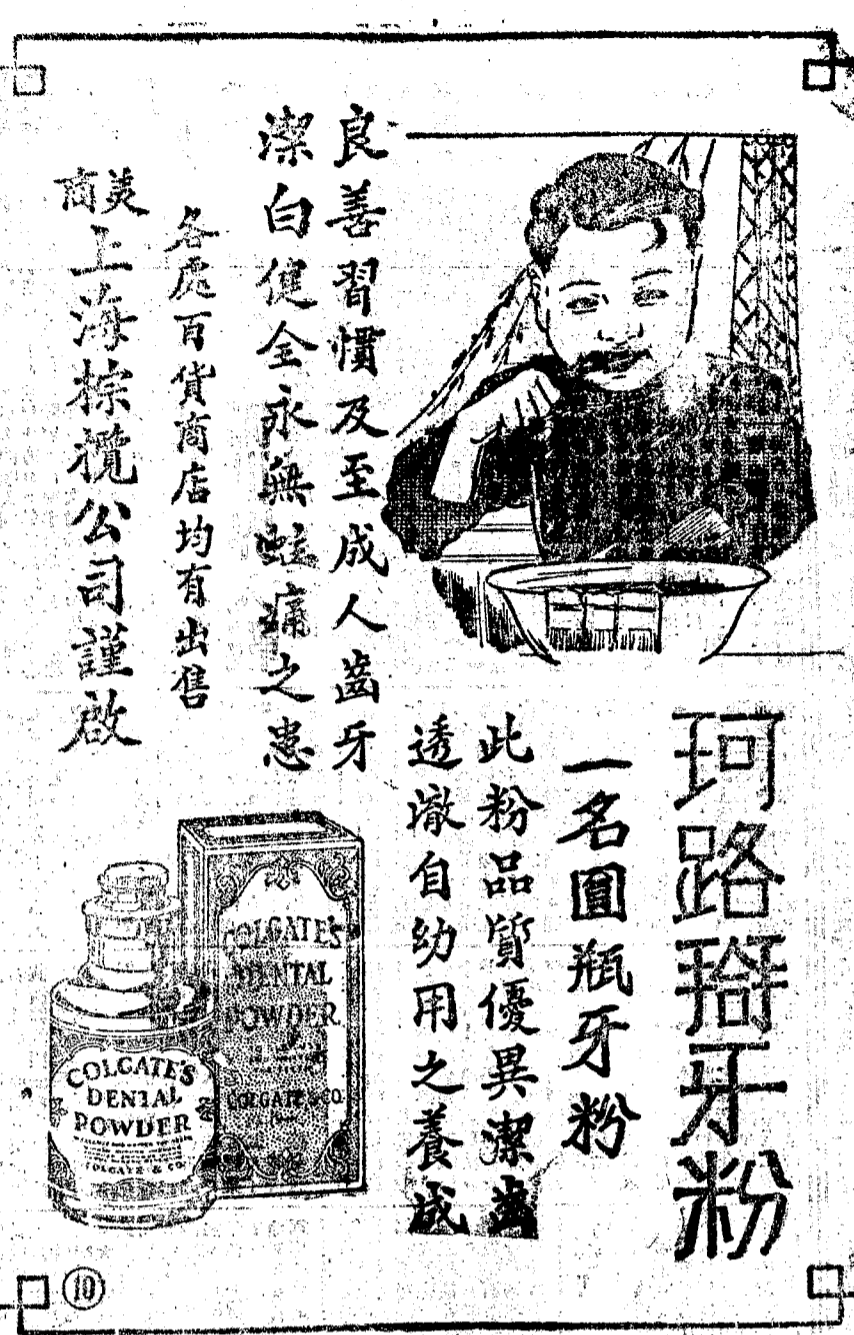 珂路搿牙粉
一名圓瓶牙粉
此粉品質優異潔齒
透澈自幼用之養成
良善習慣及至成人齒牙
潔白健全永無蛀痛之患
各處百貨商店均有出售
美商
上海棕欖公司謹啟
COLGATE'S
DENTAL
POWDER
COLGATE & CO.
COLGATE'S
DENTAL
POWDER
COLGATE & CO.
10